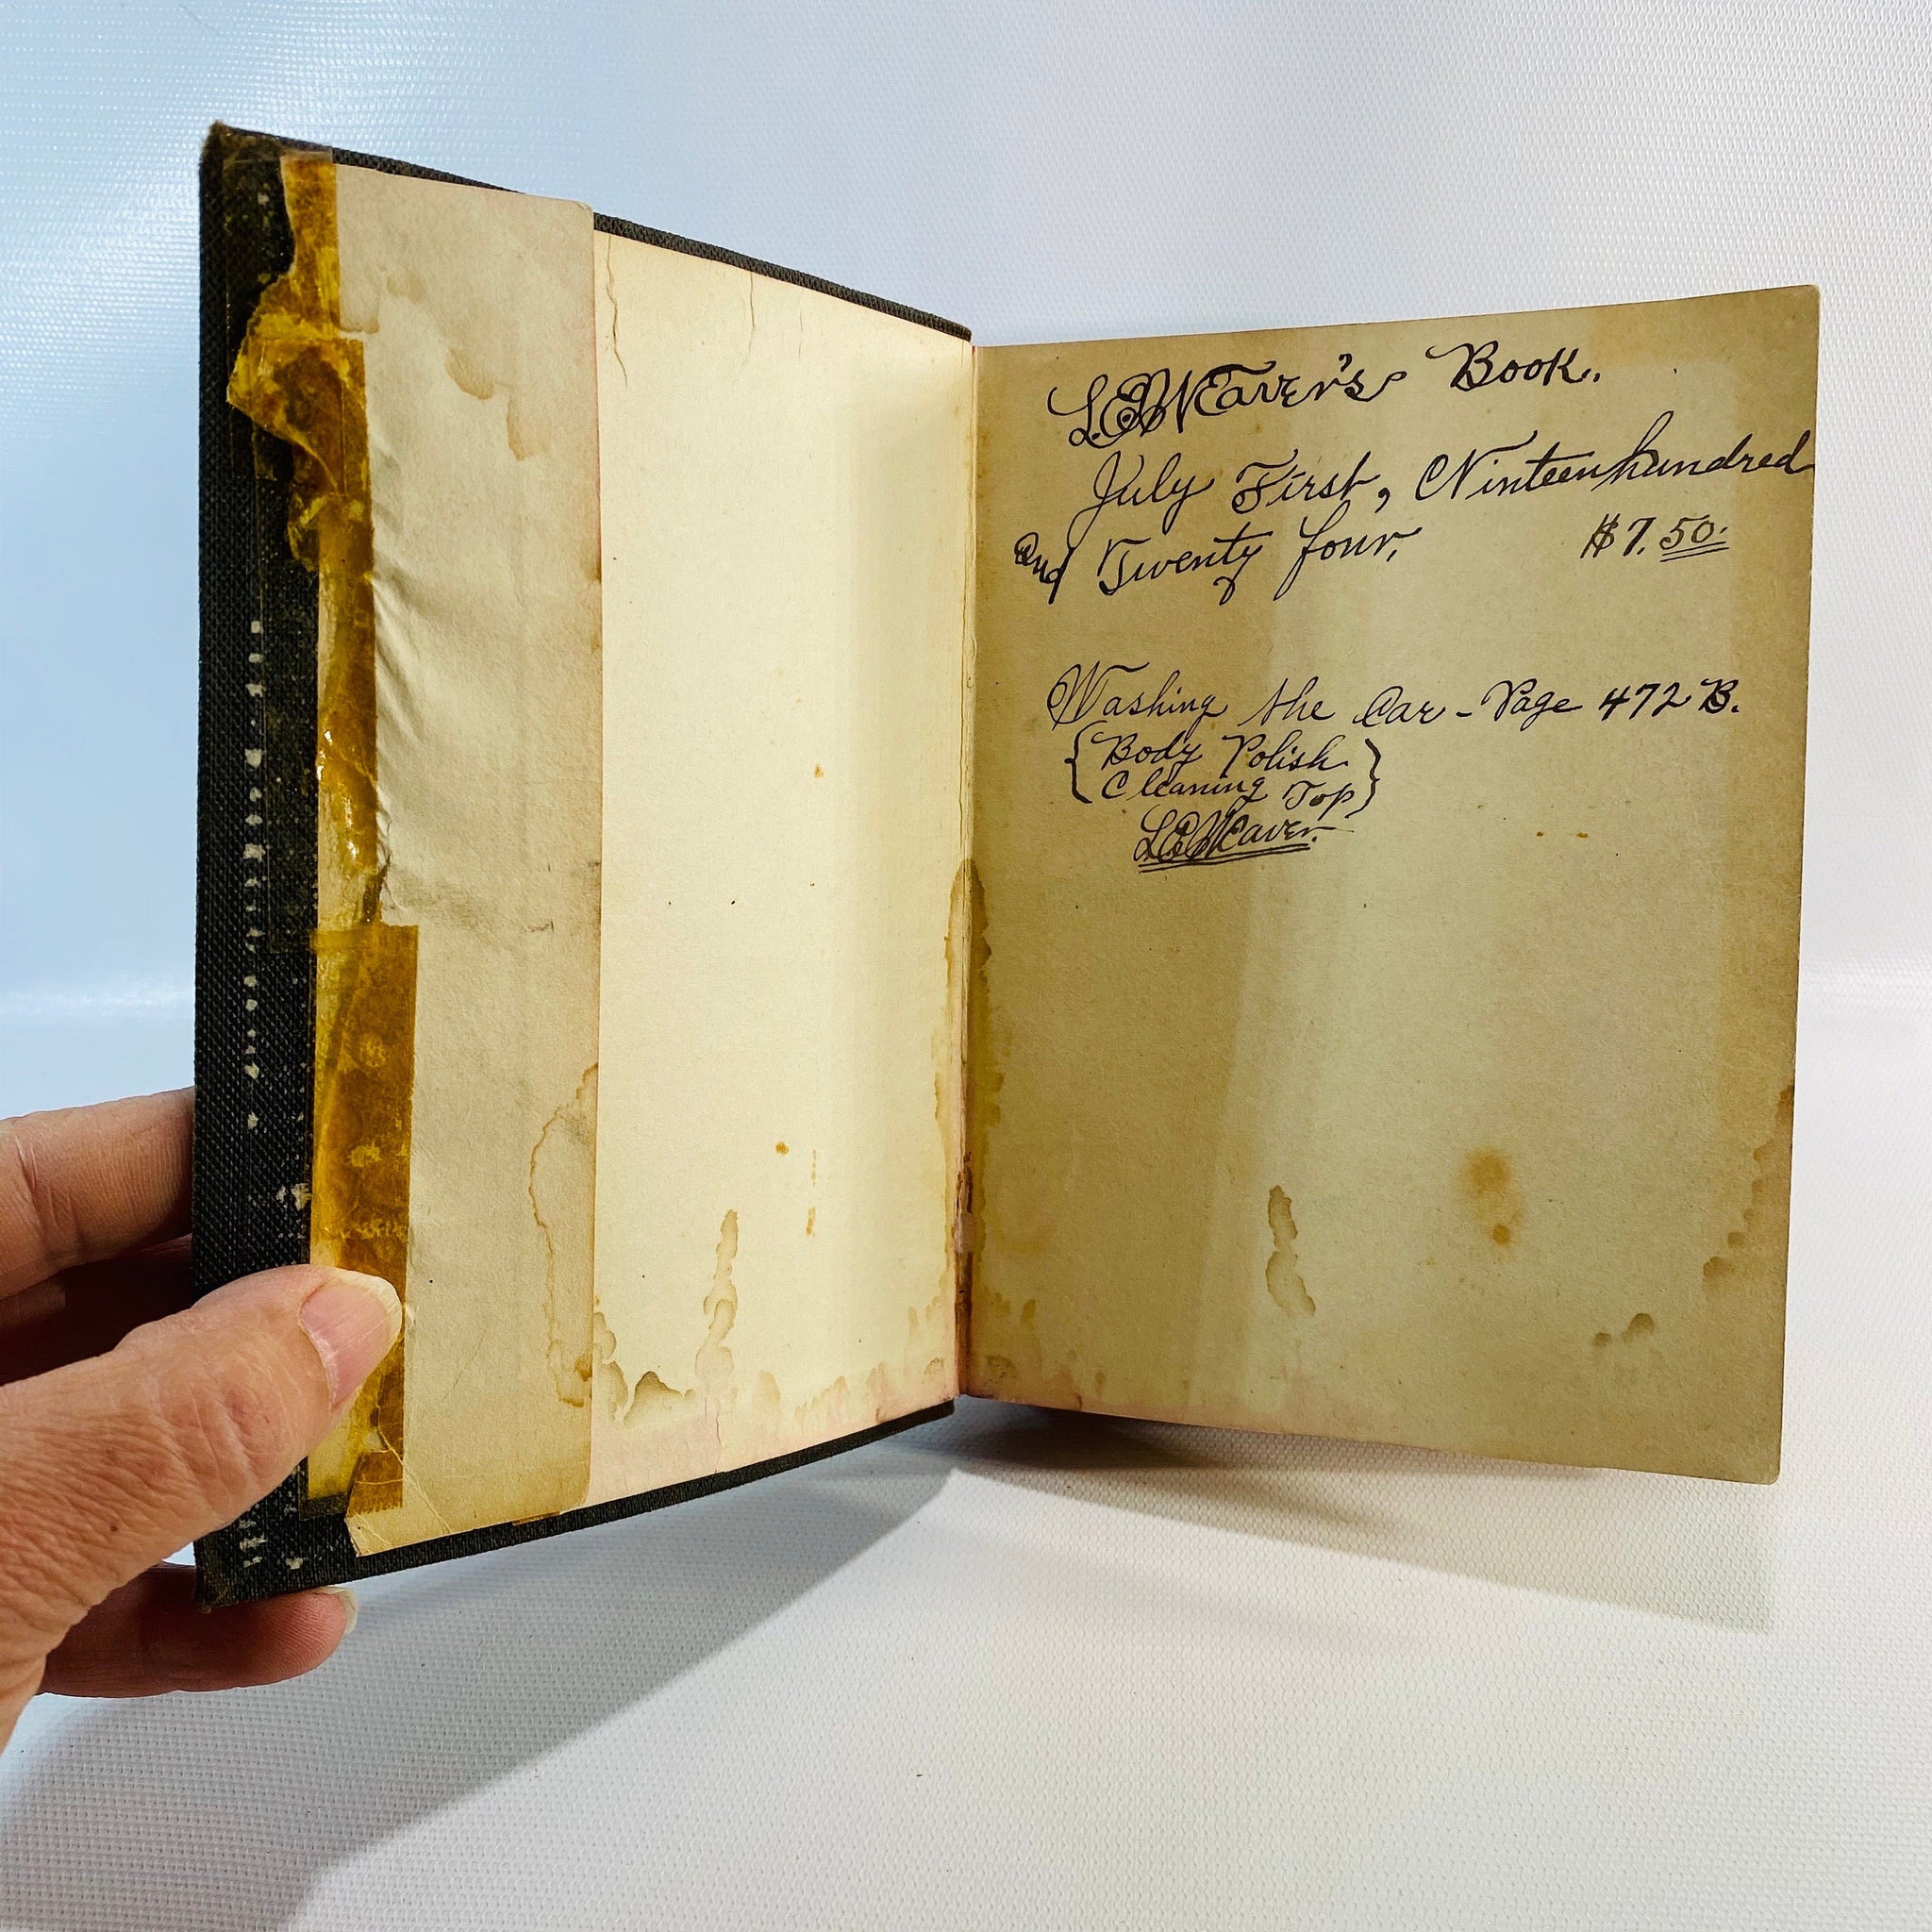 L.E.Weaver's Book.
July First, Ninteenhundred
and Twenty four, $7.50.
Washing the Car - Page 472 B.
{Body Polish}
{Cleaning Top}
L.E.Weaver.